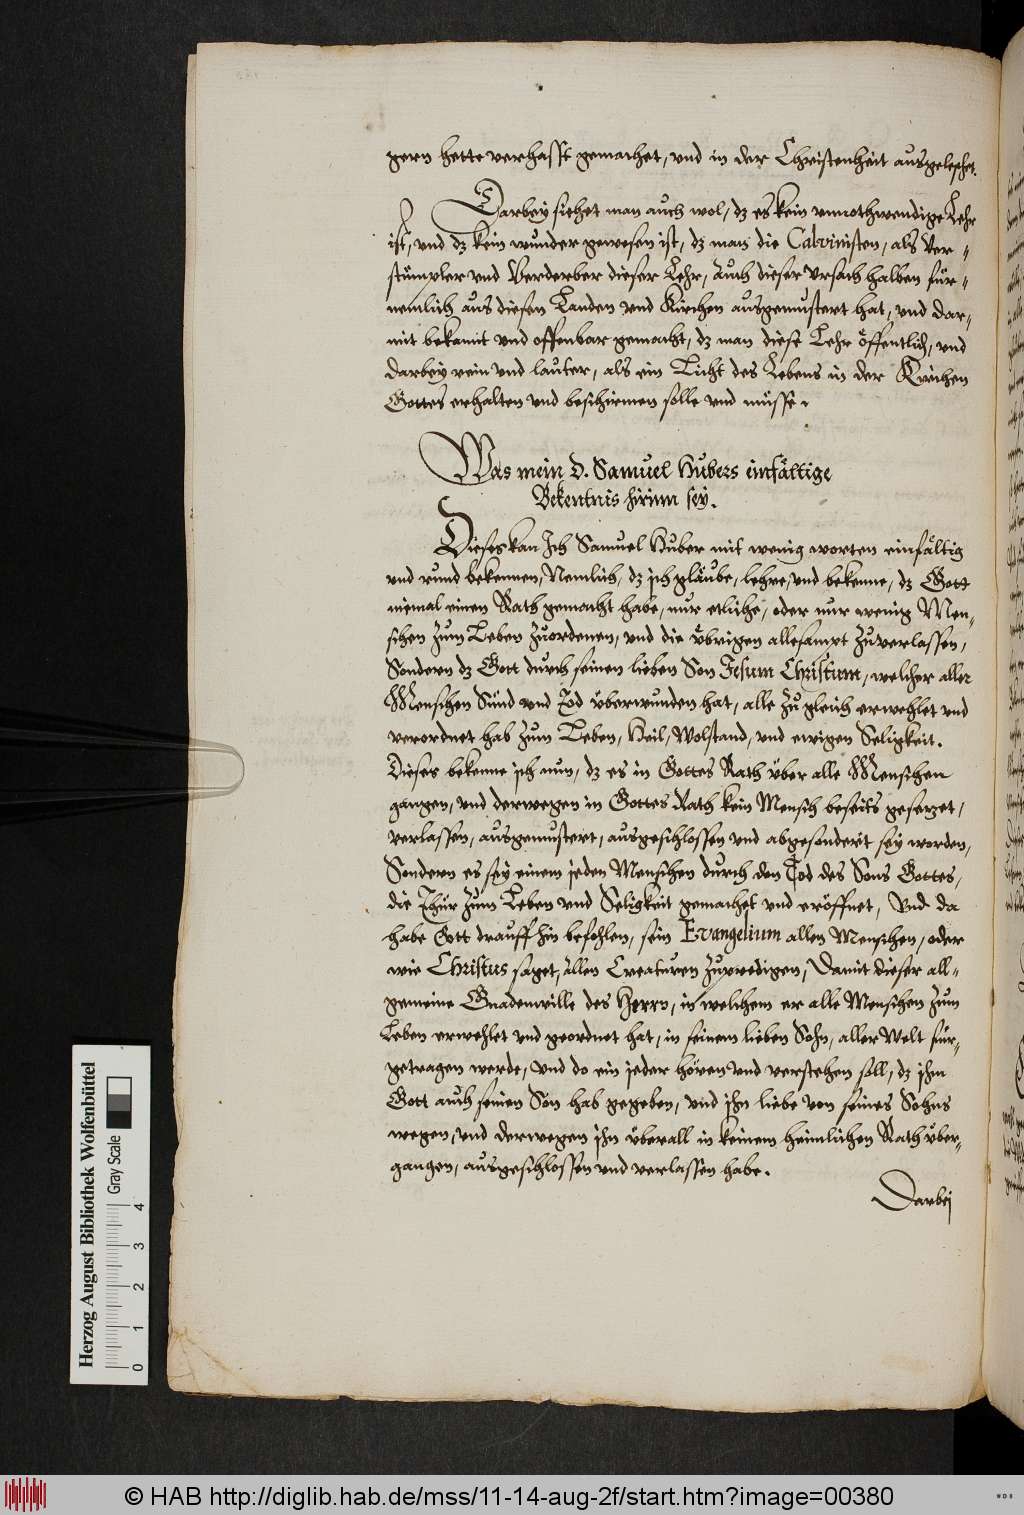 gern hette verhasst gemachet, vnd in der Christenheit ausgeleschet.
Darbey siehet man auch wol, dz es kein vnnothwendige Lehr
ist, vnd dz kein wunder gewesen ist, dz man die Calvinisten, als Ver-
stümpler vnd Verderber dieser Lehr, Auch dieser vrsach halben für-
nemlich aus diesen Landen vnd Kirchen ausgemustert hat, vnd dar-
mit bekannt vnd offenbar gemacht, dz man diese Lehr öffentlich, vnd
darbey rein vnd lauter, als ein Licht des Lebens in der Kirchen
Gottes erhalten vnd beschirmen solle vnd müsse.
Was mein D. Samuel Hubers einfältige
Bekentnis hirinn sey.
Dieses kan Ich Samuel Huber mit wenig worten einfältig
vnd rund bekennen, Nemlich, dz ich gläube, lehre, vnd bekenne, dz Gott
niemal einen Rath gemacht habe, nur etliche, oder nur wenig Men-
schen zum Leben zuordenen, vnd die übrigen allesampt zuverlassen,
Sondern dz Gott durch seinen lieben Son Jesum Christum, welcher aller
Menschen Sünd vnd Tod überwunden hat, alle zu gleich erwehlet vnd
verordnet hab zum Leben, Heil, Wolstand, vnd ewigen Seligkeit.
Dieses bekenne ich nun, dz es in Gottes Rath über alle Menschen
gangen, vnd derwegen in Gottes Rath kein Mensch beseits gesetzet,
verlassen, ausgemustert, ausgeschlossen vnd abgesondert sey worden,
Sondern es sey einem jeden Menschen durch den Tod des Sons Gottes,
die Thür zum Leben vnd Seligkeit gemachet vnd eröffnet, Vnd da
habe Gott drauff hin befohlen, sein Evangelium allen Menschen, oder
wie Christus saget, allen Creaturen zupredigen, Damit dieser all-
gemeine Gnadenwille des Herrn, in welchem er alle Menschen zum
Leben erwehlet vnd geordnet hat, in seinem lieben Sohn, aller Welt für-
getragen werde, Vnd do ein jeder hören vnd verstehen soll, dz ihm
Gott auch seinen Son hab gegeben, vnd ihn liebe von seines Sohns
wegen, vnd derwegen ihn überall in keinem heimlichen Rath über-
gangen, ausgeschlossen vnd verlassen habe.
Darbej
Herzog August Bibliothek Wolfenbüttel
Gray Scale
0 1 2 3 4
© HAB http://diglib.hab.de/mss/11-14-aug-2f/start.htm?image=00380